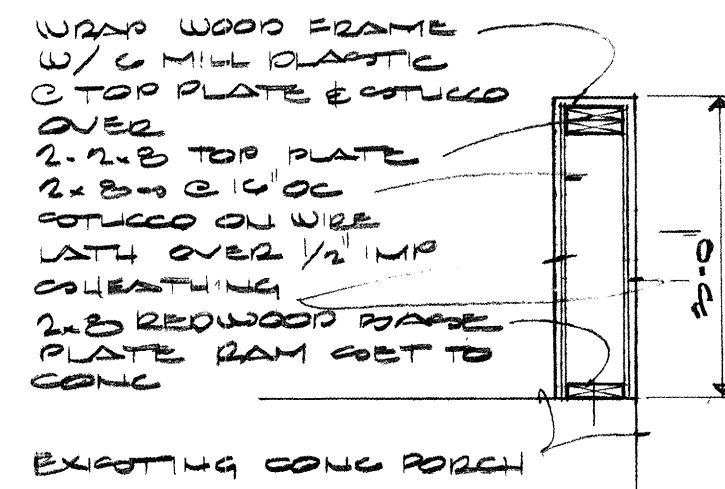 WRAP WOOD FRAME
W/ 6 MILL PLASTIC
@ TOP PLATE & STUCCO
OVER
2-2x8 TOP PLATE
2x8s @ 16" OC
STUCCO ON WIRE
LATH OVER 1/2" IMP
SHEATHING
2x8 REDWOOD BASE
PLATE RAM SET TO
CONC
EXISTING CONC PORCH
3'-0"